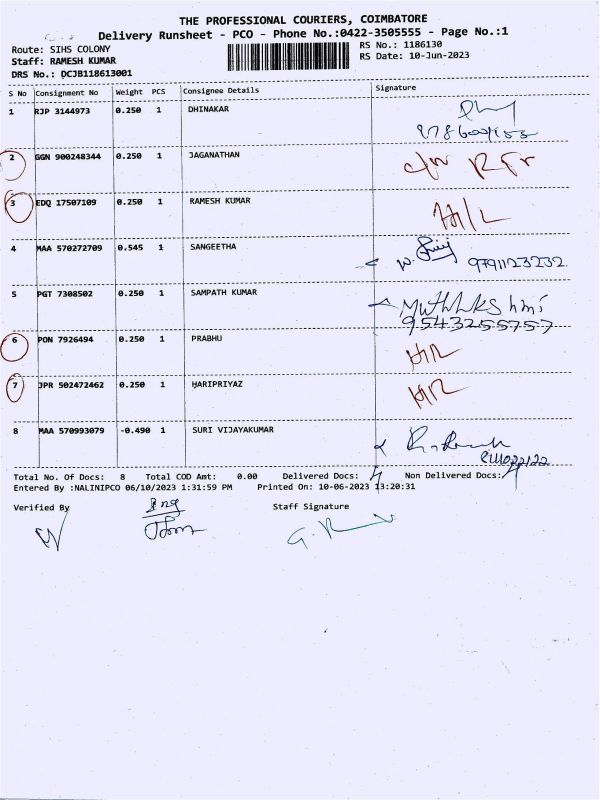 THE PROFESSIONAL COURIERS, COIMBATORE
Delivery Runsheet - PCO - Phone No.:0422-3505555 - Page No.:1
Route: SIHS COLONY
RS No.: 1186130
Staff: RAMESH KUMAR
RS Date: 10-Jun-2023
DRS No.: DCJB118613001
S No Consignment No Weight PCS Consignee Details Signature
1 RJP 3144973 0.250 1 DHINAKAR
2 GGN 900248344 0.250 1 JAGANATHAN
3 EDQ 17507109 0.250 1 RAMESH KUMAR
4 MAA 570272709 0.545 1 SANGEETHA 9791123232
5 PGT 7308502 0.250 1 SAMPATH KUMAR
9543255757
6 PON 7926494 0.250 1 PRABHU
7 JPR 502472462 0.250 1 HARIPRIYAZ
8 MAA 570993079 -0.490 1 SURI VIJAYAKUMAR
Total No. Of Docs: 8 Total COD Amt: 0.00 Delivered Docs: 4 Non Delivered Docs: 4
Entered By :NALINIPCO 06/10/2023 1:31:59 PM Printed On: 10-06-2023 13:20:31
Verified By Staff Signature